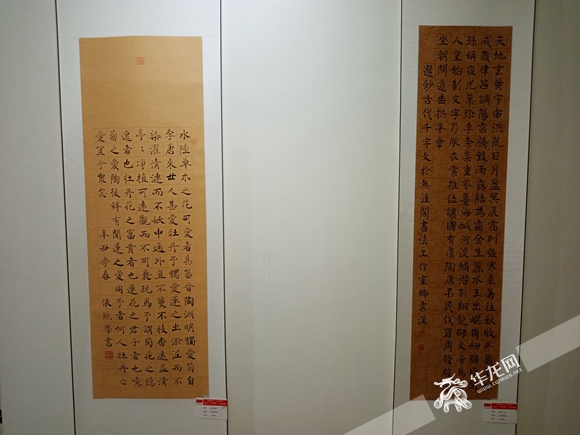 水陸草木之花可愛者甚蕃晉陶淵明獨愛菊自
李唐來世人甚愛牡丹予獨愛蓮之出淤泥而不
染濯清漣而不妖中通外直不蔓不枝香遠益清
亭亭淨植可遠觀而不可褻玩焉予謂菊花之隱
逸者也牡丹花之富貴者也蓮花之君子者也噫
菊之愛陶後鮮有聞蓮之愛同予者何人牡丹之
愛宜乎衆矣
辛丑季春 依然學書
天地玄黃宇宙洪荒日月盈昃辰宿列張寒來暑往秋收冬藏
成歲律呂調陽雲騰致雨露結為霜金生麗水玉出崑岡劍號
珠稱夜光菓珍李柰菜重芥薑海鹹河淡鱗潛羽翔龍師火帝
人皇始制文字乃服衣裳推位讓國有虞陶唐弔民伐罪周發殷
坐朝問道垂拱平章
選鈔古代千字文於無涯閣書法工作室
华龙网
www.cqnews.net